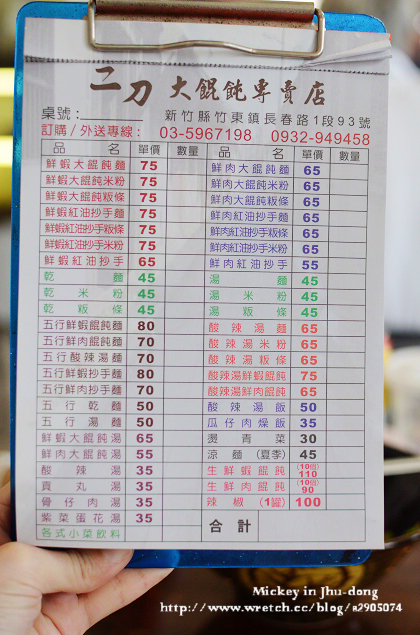 二刀 大餛飩專賣店
桌號：
新竹縣竹東鎮長春路1段93號
訂購/外送專線： 03-5967198 0932-949458
品名 單價 數量 品名 單價 數量
鮮蝦大餛飩麵 75 鮮肉大餛飩麵 65
鮮蝦大餛飩米粉 75 鮮肉大餛飩米粉 65
鮮蝦大餛飩粄條 75 鮮肉大餛飩粄條 65
鮮蝦紅油抄手麵 75 鮮肉紅油抄手麵 65
鮮蝦紅油抄手粄條 75 鮮肉紅油抄手粄條 65
鮮蝦紅油抄手米粉 75 鮮肉紅油抄手米粉 65
鮮蝦紅油抄手 65 鮮肉紅油抄手 55
乾麵 45 湯麵 45
乾米粉 45 湯米粉 45
乾粄條 45 湯粄條 45
五行鮮蝦餛飩麵 80 酸辣湯麵 65
五行鮮肉餛飩麵 70 酸辣湯米粉 65
五行酸辣湯麵 70 酸辣湯粄條 65
五行鮮蝦抄手麵 80 酸辣湯鮮蝦餛飩 75
五行鮮肉抄手麵 70 酸辣湯鮮肉餛飩 65
五行乾麵 50 酸辣湯飯 50
五行湯麵 50 瓜仔肉燥飯 35
鮮蝦大餛飩湯 65 燙青菜 30
鮮肉大餛飩湯 55 涼麵(夏季) 45
酸辣湯 35 生鮮蝦餛飩 (10個) 110
貢丸湯 35 生鮮肉餛飩 (10個) 90
骨仔肉湯 35 辣椒(1罐) 100
紫菜蛋花湯 35 合計
各式小菜飲料
Mickey in Jhu-dong
http://www.wretch.cc/blog/a2905074